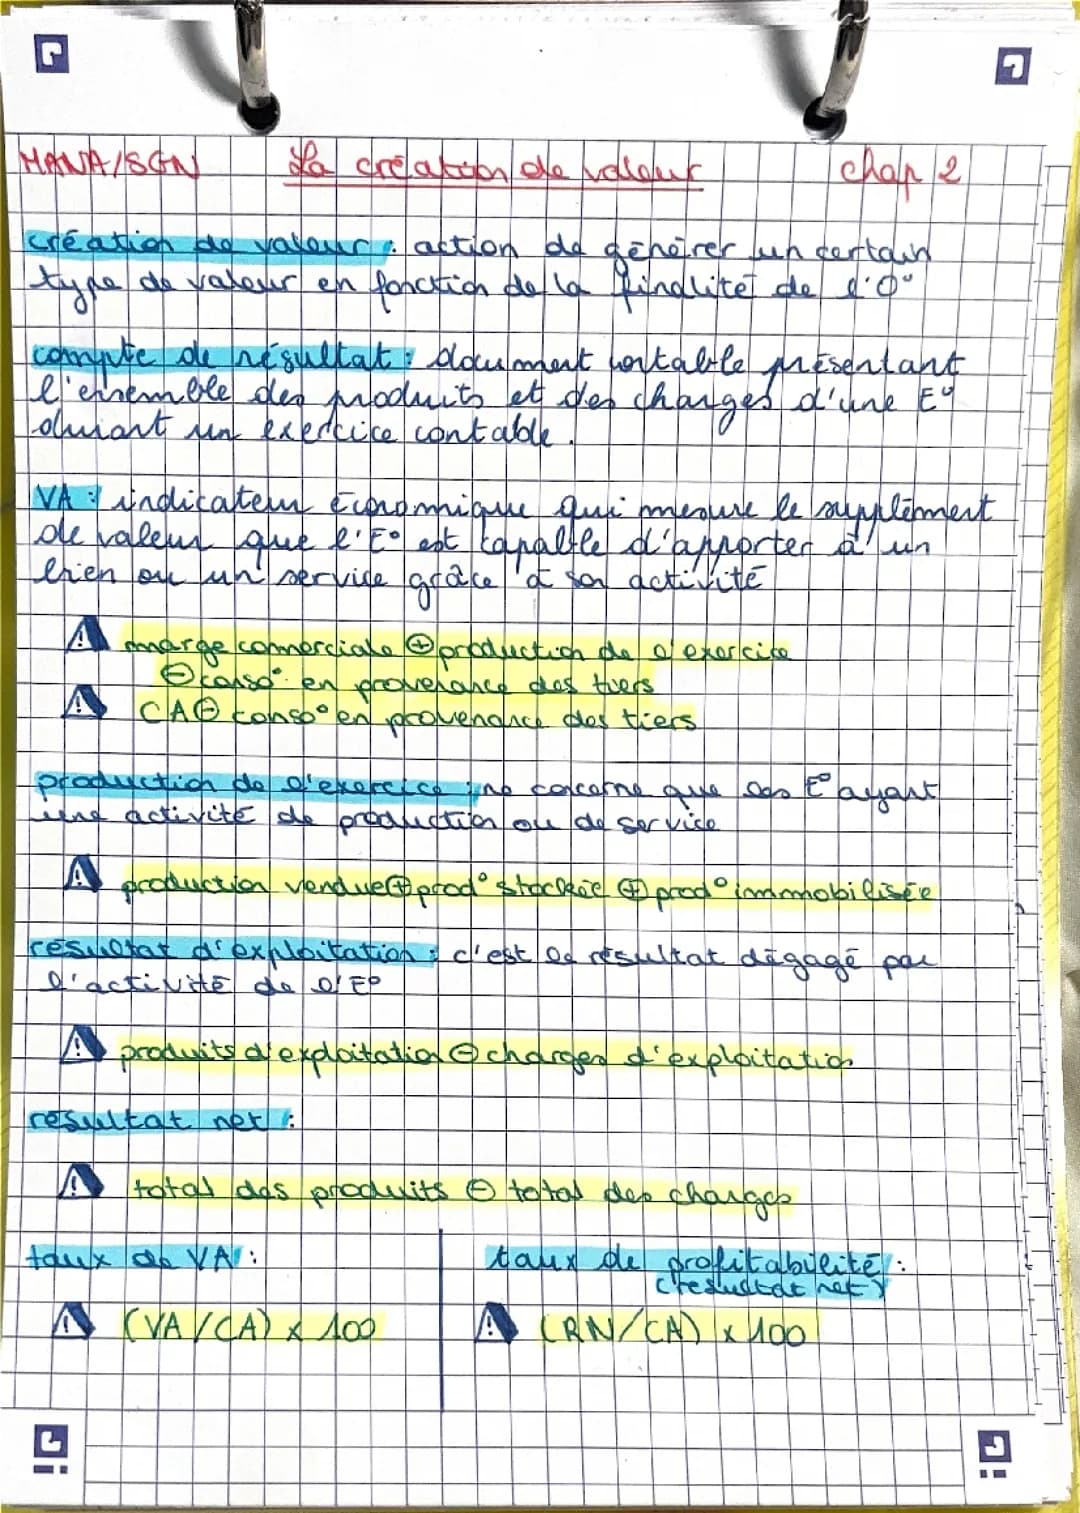 MANA/SGN La création de valeur chap 2
création de valeur : action de générer un certain
type de valeur en fonction de la finalité de l'O°
compte de résultat : document contable présentant
l'ensemble des produits et des charges d'une E°
durant un exercice contable.
VA : indicateur économique qui mesure le supplément
de valeur que l'E° est capable d'apporter à un
bien ou un service grâce à son activité
⚠ marge comerciale ⊕ production de l'exercice
⊖ conso° en provenance des tiers
⚠ CA ⊖ conso° en provenance des tiers
production de l'exercice : ne concerne que les E° ayant
une activité de production ou de service
⚠ production vendue ⊕ prod° stockée ⊕ prod° immobilisée
résultat d'exploitation : c'est le résultat dégagé par
l'activité de l'E°
⚠ produits d'exploitation ⊖ charges d'exploitation
résultat net :
⚠ total des produits ⊖ total des charges
taux de VA : taux de profitabilité :
(résultat net)
⚠ (VA/CA) x 100 ⚠ (RN/CA) x 100